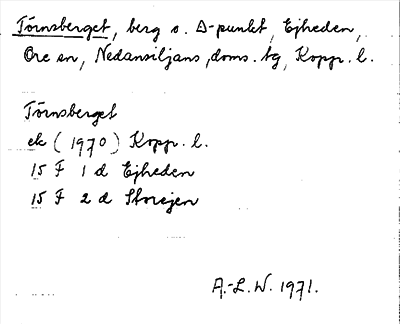 Törnsberget, berg o. Δ-punkt, Ejheden,
Ore sn, Nedansiljans, doms. tg, Kopp. l.
Törnsberget
ek (1970) Kopp. l.
15 F 1 d Ejheden
15 F 2 d Storejen
A.-L.W. 1971.